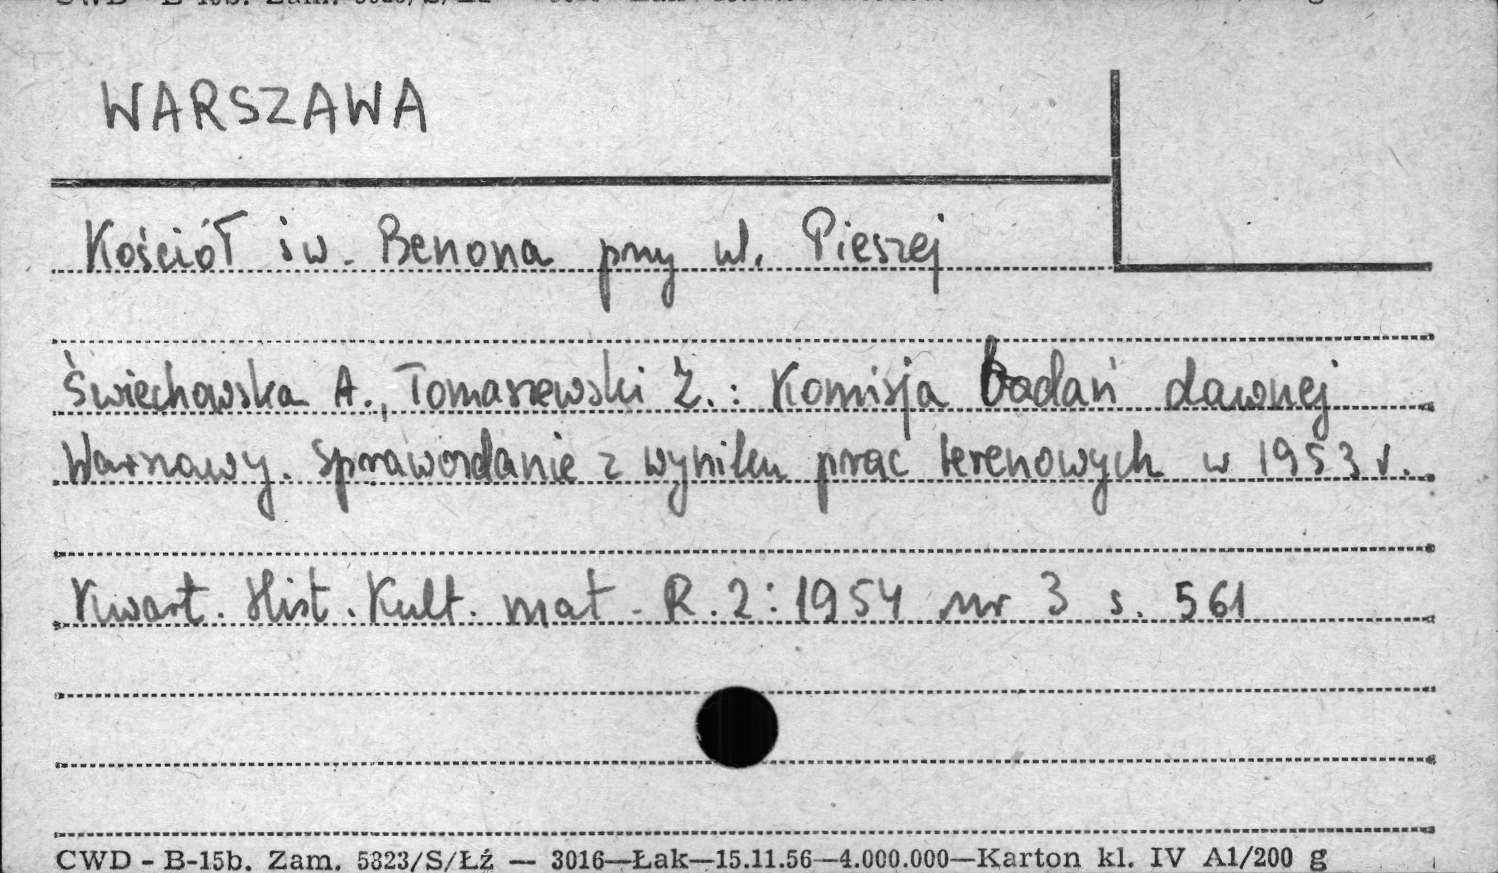 WARSZAWA
Kościół św. Benona przy ul. Pieszej
Świechowska A., Tomaszewski Z.: Komisja badań dawnej
Warszawy. Sprawozdanie z wyniku prac terenowych w 1953 r.
Kwart. Hist. Kult. mat. R. 2: 1954 nr 3 s. 561
CWD - B-15b. Zam. 5323/S/Łź — 3016—Łak—15.11.56—4.000.000—Karton kl. IV A1/200 g